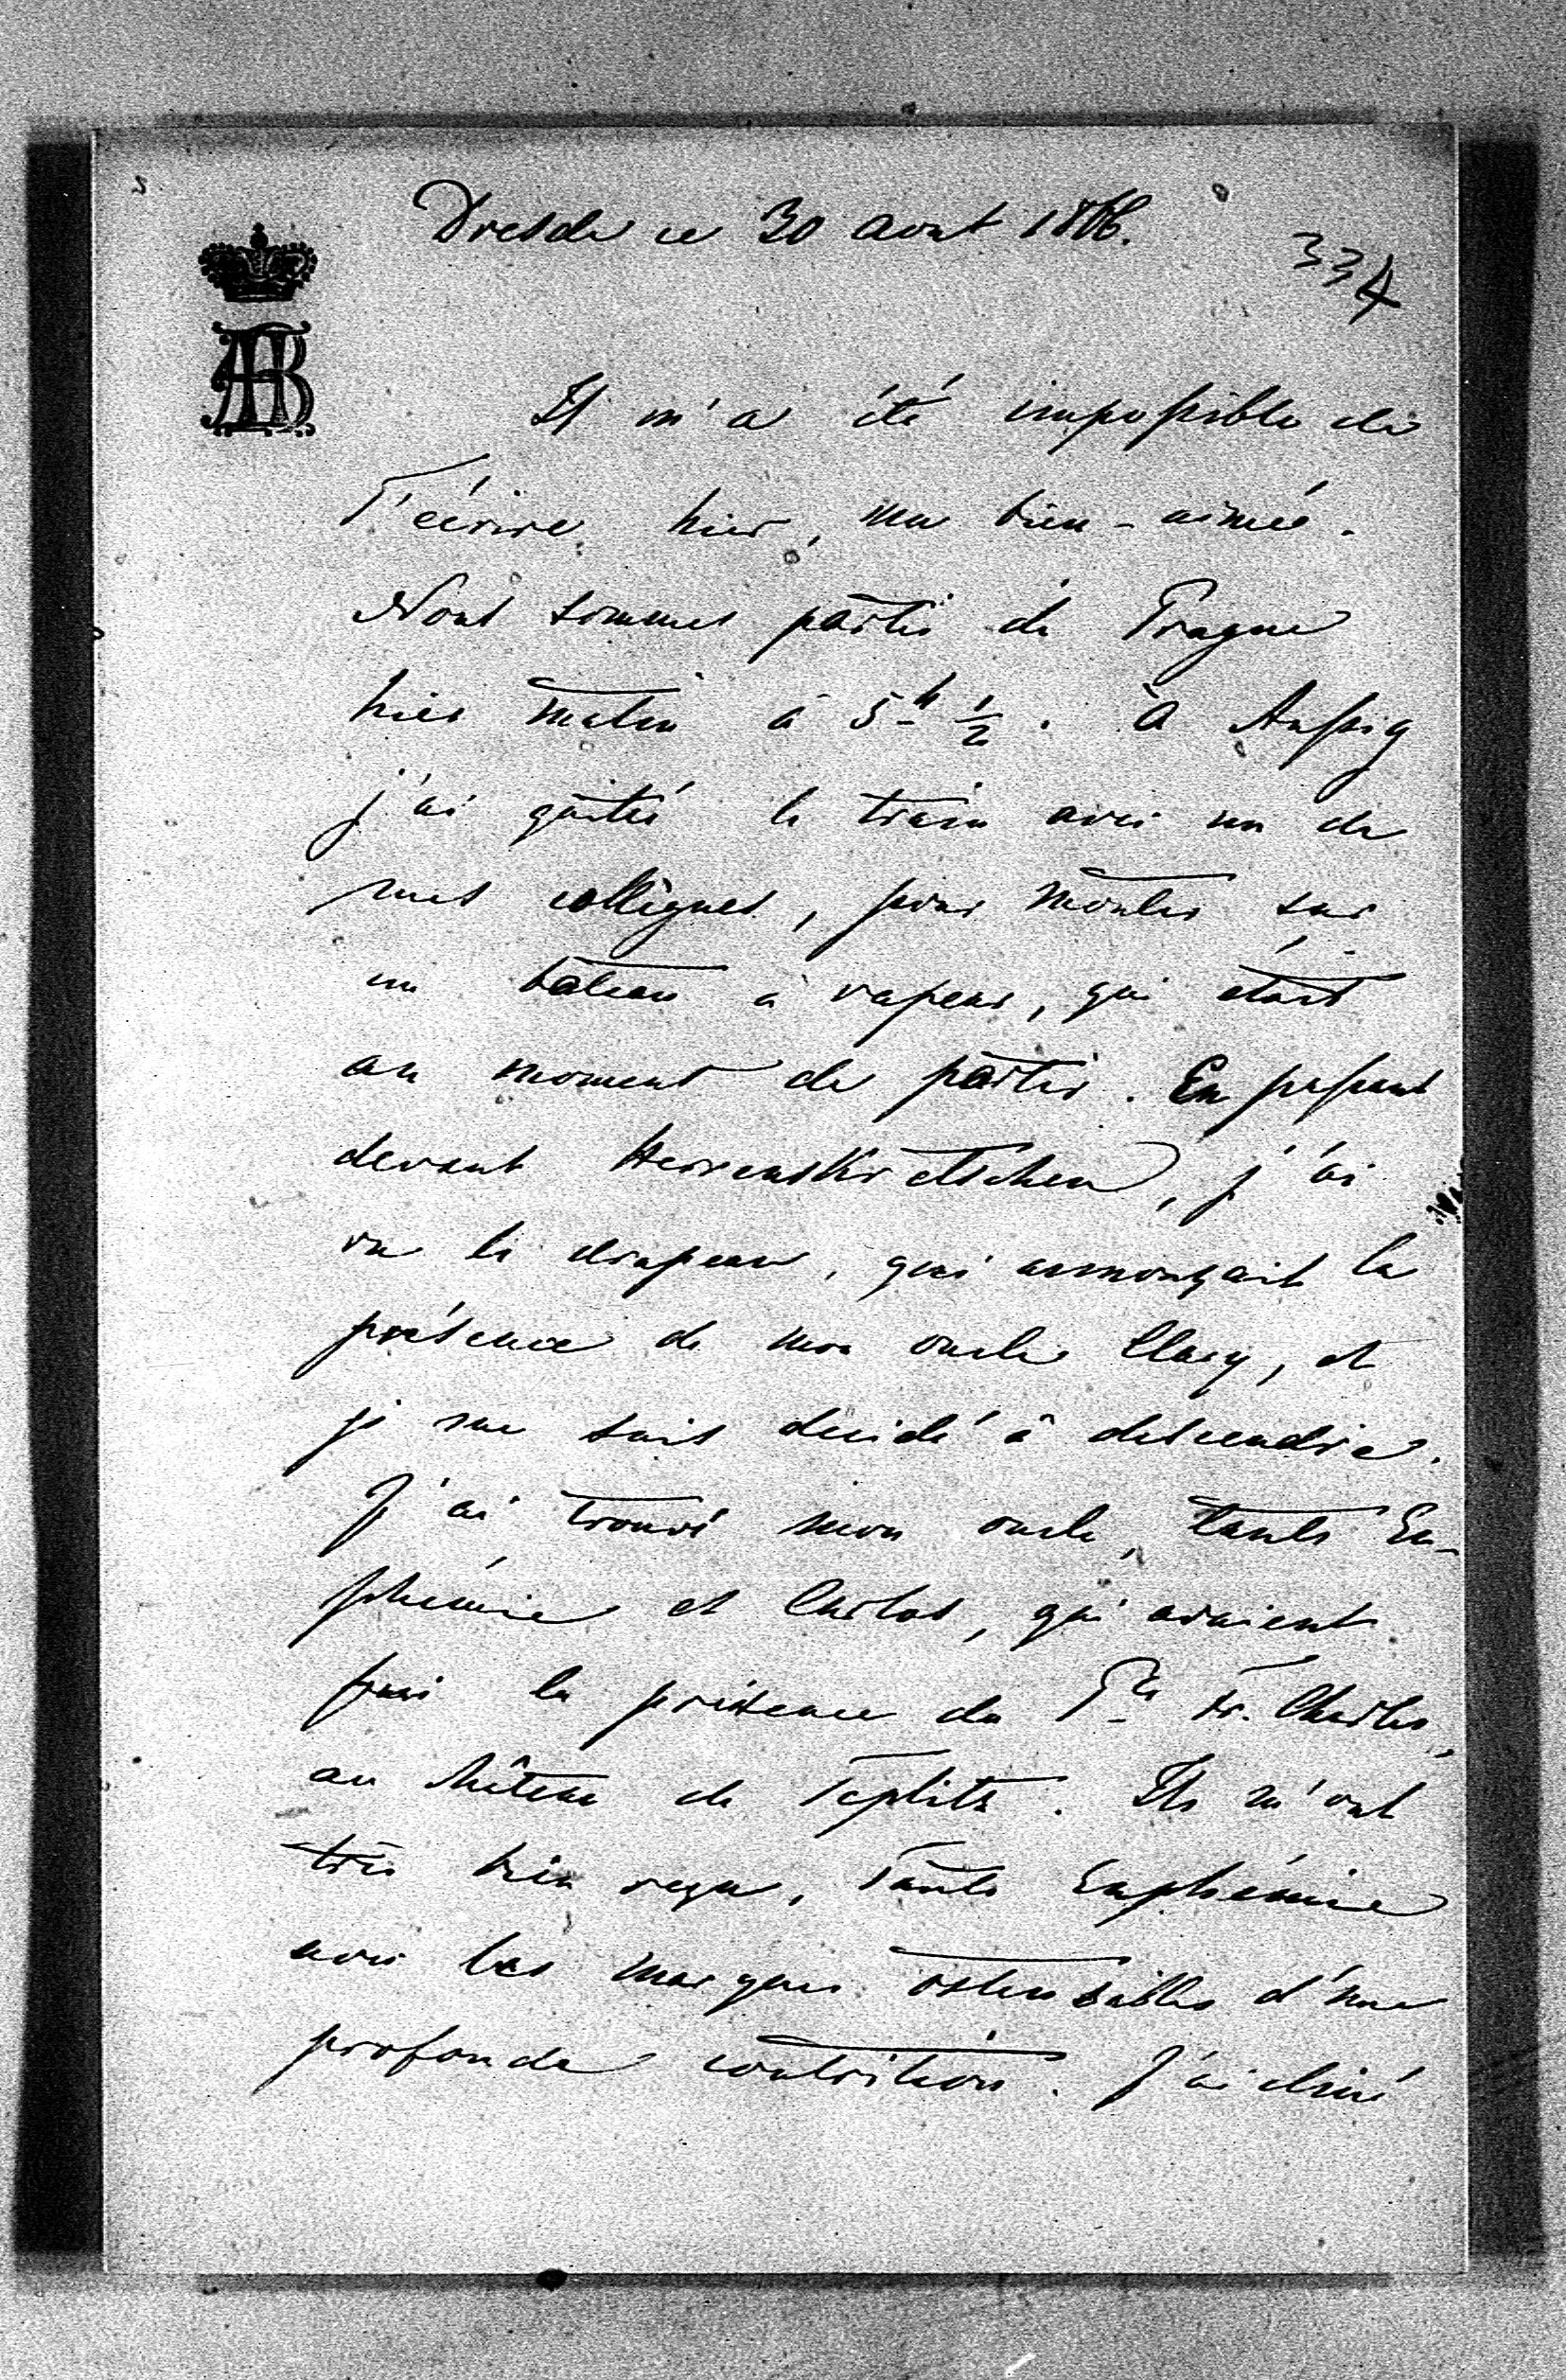 Dresde ce 30 aout 1866.
334
AHB
Il m'a été impossible de
T'écrire hier, ma bien-aimée.
Nous sommes partis de Prague
hier matin à 5h 1/2. à Aussig
j'ai quitté le train avec un de
mes collègues, pour monter sur
un bateau à vapeur, qui était
au moment de partir. En passant
devant Herrenskretschen, j'ai
vu le drapeau, qui annonçait la
présence de mon oncle Clary, et
je me suis decidé à descendre.
J'ai trouvé mon oncle, tante Eu-
phémie et Carlos, qui avaient
fui la présence du Pce Fr. Charles,
au château de Teplitz. Ils m'ont
très bien reçu, Tante Euphémie
avec les marques ostensibles d'une
profonde contrition. J'ai diné